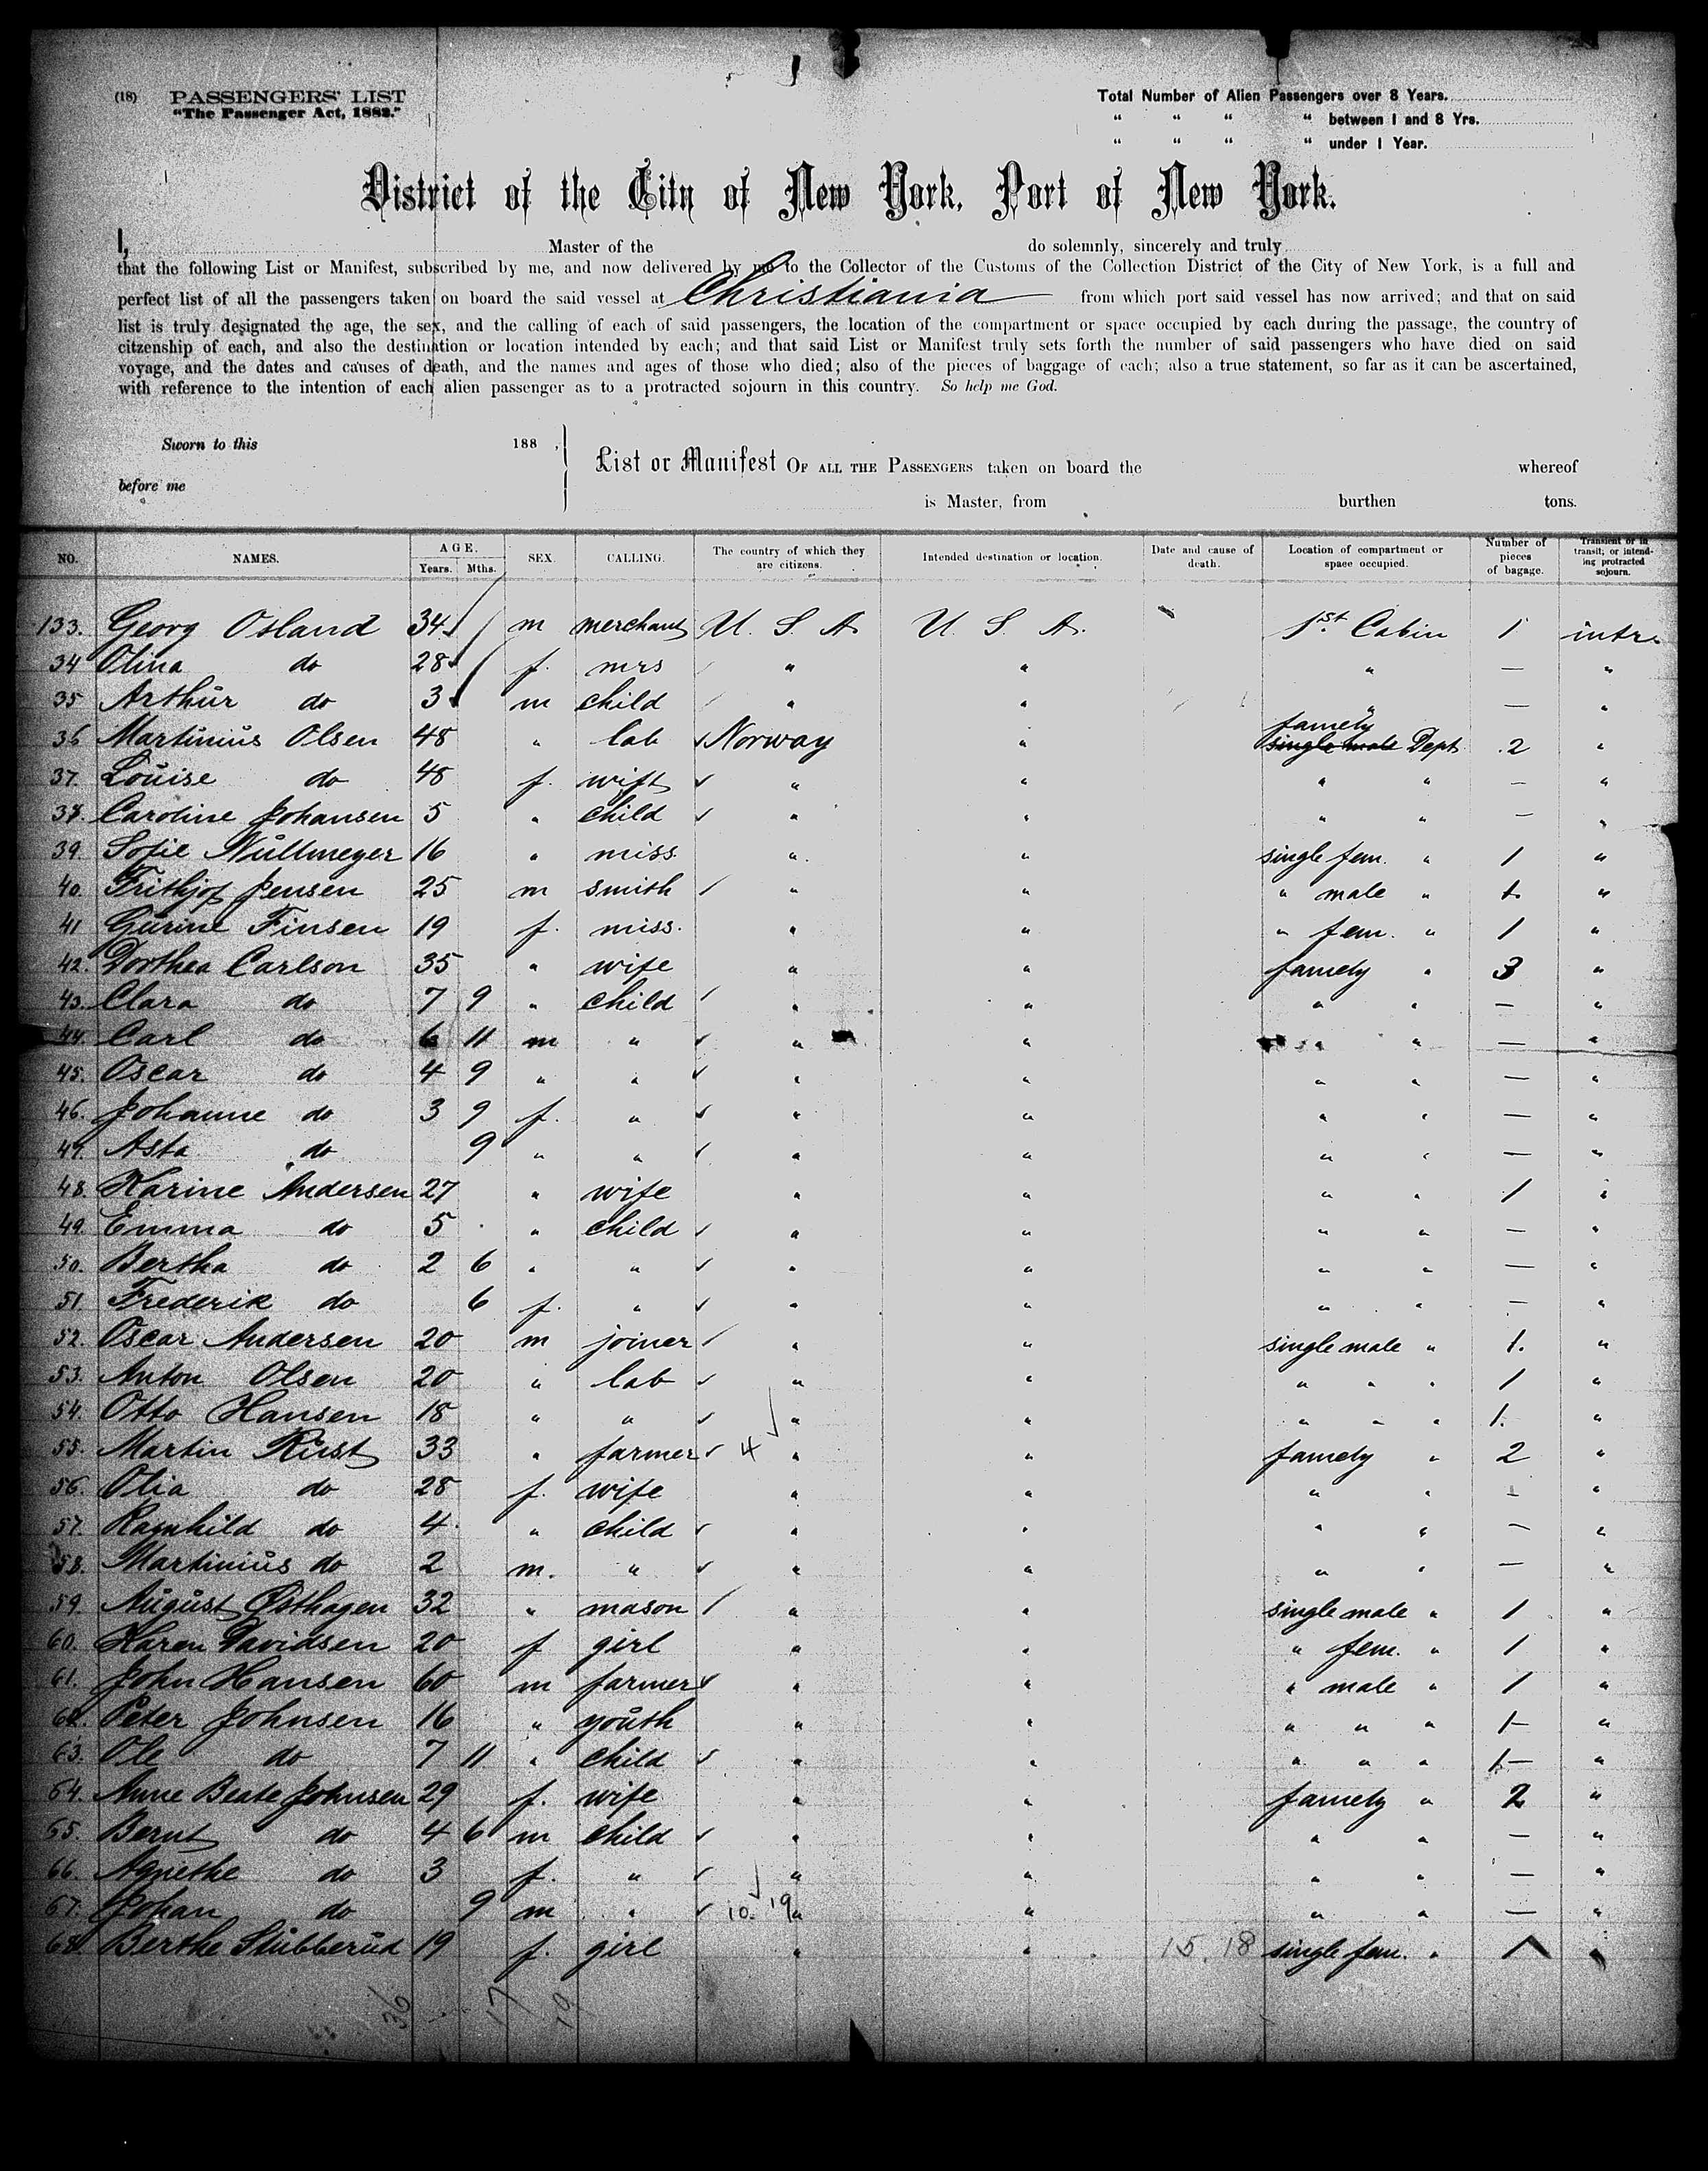 (18) PASSENGERS' LIST
"The Passenger Act, 1882."
Total Number of Alien Passengers over 8 Years.
" " " " between 1 and 8 Yrs.
" " " " under 1 Year.
District of the City of New York, Port of New York.
I, Master of the do solemnly, sincerely and truly
that the following List or Manifest, subscribed by me, and now delivered by me to the Collector of the Customs of the Collection District of the City of New York, is a full and
perfect list of all the passengers taken on board the said vessel at Christiania from which port said vessel has now arrived; and that on said
list is truly designated the age, the sex, and the calling of each of said passengers, the location of the compartment or space occupied by each during the passage, the country of
citzenship of each, and also the destination or location intended by each; and that said List or Manifest truly sets forth the number of said passengers who have died on said
voyage, and the dates and causes of death, and the names and ages of those who died; also of the pieces of baggage of each; also a true statement, so far as it can be ascertained,
with reference to the intention of each alien passenger as to a protracted sojourn in this country. So help me God.
Sworn to this 188 ,
before me
List or Manifest OF ALL THE PASSENGERS taken on board the whereof
is Master, from burthen tons.
NO. NAMES. AGE. Years. Mths. SEX. CALLING. The country of which they are citizens. Intended destination or location. Date and cause of death. Location of compartment or space occupied. Number of pieces of bagage. Transient or in transit; or intending protracted sojourn.
133. Georg Osland 34 m merchant U. S. A. U. S. A. 1st Cabin 1 intr.
34 Olina do 28 f. mrs " " " — "
35 Arthur do 3 m child " " " — "
36 Martinius Olsen 48 " lab Norway " famely single male Dept 2 "
37. Louise do 48 f. wift " " " " — "
38. Caroline Johansen 5 " child " " " " — "
39. Sofie Nullmeyer 16 " miss. " " single fem. " 1 "
40. Frithjof Jensen 25 m smith " " " male " 1. "
41 Gurine Finsen 19 f. miss. " " " fem. " 1 "
42. Dorthea Carlson 35 " wife " " famely " 3 "
43. Clara do 7 9 " child " " " " — "
44. Carl do 6 11 m " " " " " — "
45. Oscar do 4 9 " " " " " " — "
46. Johanne do 3 9 f. " " " " " — "
47. Asta do 9 " " " " " " — "
48. Karine Andersen 27 " wife " " " " 1 "
49. Emma do 5 " child " " " " — "
50. Bertha do 2 6 " " " " " " — "
51 Frederik do 6 f. " " " " " — "
52. Oscar Andersen 20 m joiner " " single male " 1. "
53. Anton Olsen 20 " lab " " " " " 1 "
54. Otto Hansen 18 " " " " " " " 1. "
55. Martin Rust 33 " farmer 4 " " famely " 2 "
56. Olia do 28 f. wife " " " " — "
57. Ragnhild do 4 " child " " " " — "
58. Martinius do 2 m. " " " " " — "
59. August Østhagen 32 " mason " " single male " 1 "
60. Karen Davidsen 20 f girl " " " fem. " 1 "
61. John Hansen 60 m farmer " " " male " 1 "
62. Peter Johnsen 16 " youth " " " " " 1— "
63. Ole do 7 11 " child " " " " " 1— "
64. Anne Beate Johnsen 29 f. wife " " famely " 2 "
65. Bernt do 4 6 m child " " " " — "
66. Agnethe do 3 f. " " " " " — "
67. Johan do 9 m " 10. 19 " " " " — "
68. Berthe Stubberud 19 f. girl " " 15. 18 single fem. " 1 "
36 17 19